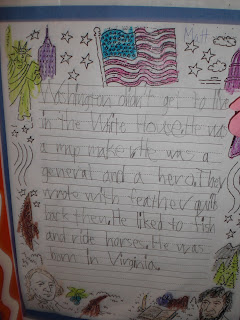 Matt
Washington didn't get to live
in the White House. He was
a map maker. He was a
general and a hero. They
wrote with feather quills
back then. He liked to fish
and ride horses. He was
born in Virginia.